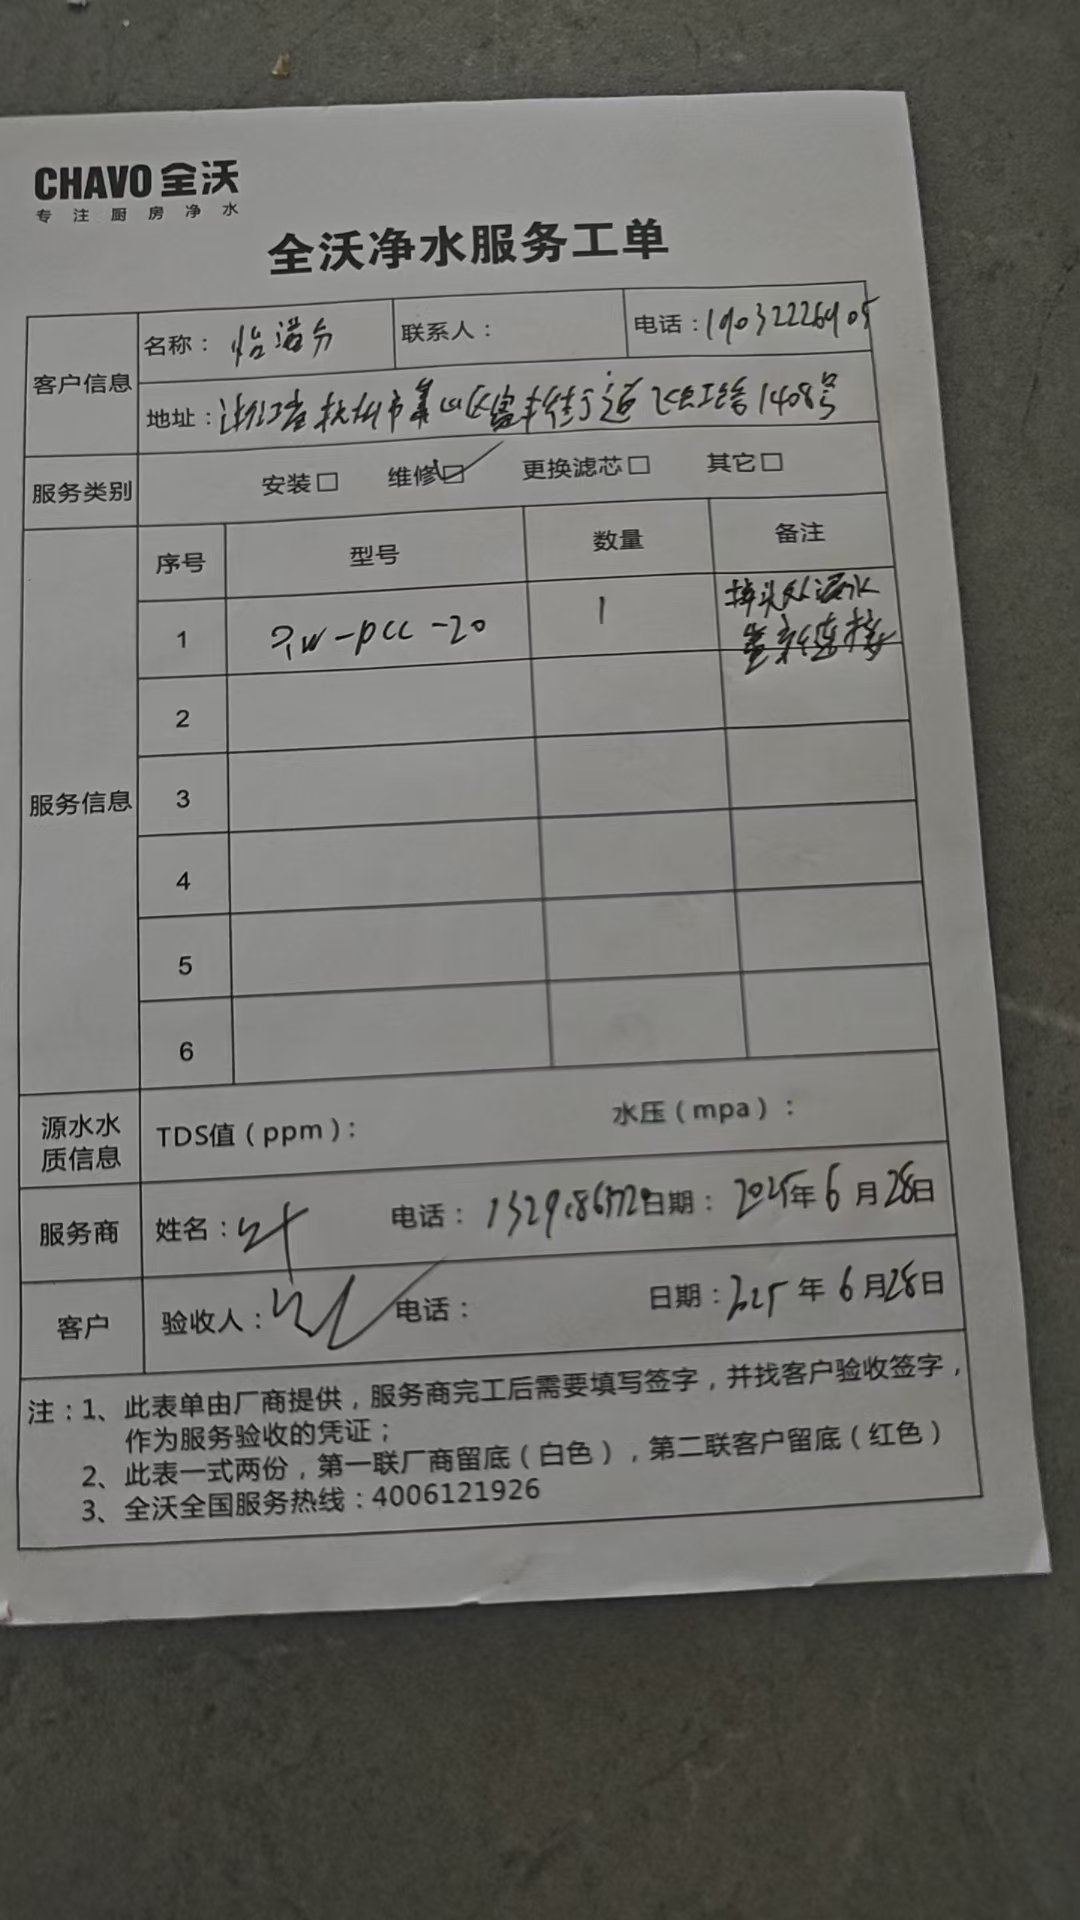 CHAVO 全沃
专注厨房净水
全沃净水服务工单
客户信息
名称：怡滋分 联系人： 电话：19032226905
地址：浙江省杭州市萧山区 街道飞虹路1408号
服务类别 安装□ 维修☑ 更换滤芯□ 其它□
服务信息
序号 型号 数量 备注
1 QW-PCC-20 1 掉头处漏水
重新连接
2
3
4
5
6
源水水质信息 TDS值（ppm）： 水压（mpa）：
服务商 姓名：叶 电话： 日期：2025年6月28日
客户 验收人： 电话： 日期：2025年6月28日
注：1、此表单由厂商提供，服务商完工后需要填写签字，并找客户验收签字，
作为服务验收的凭证；
2、此表一式两份，第一联厂商留底（白色），第二联客户留底（红色）
3、全沃全国服务热线：4006121926